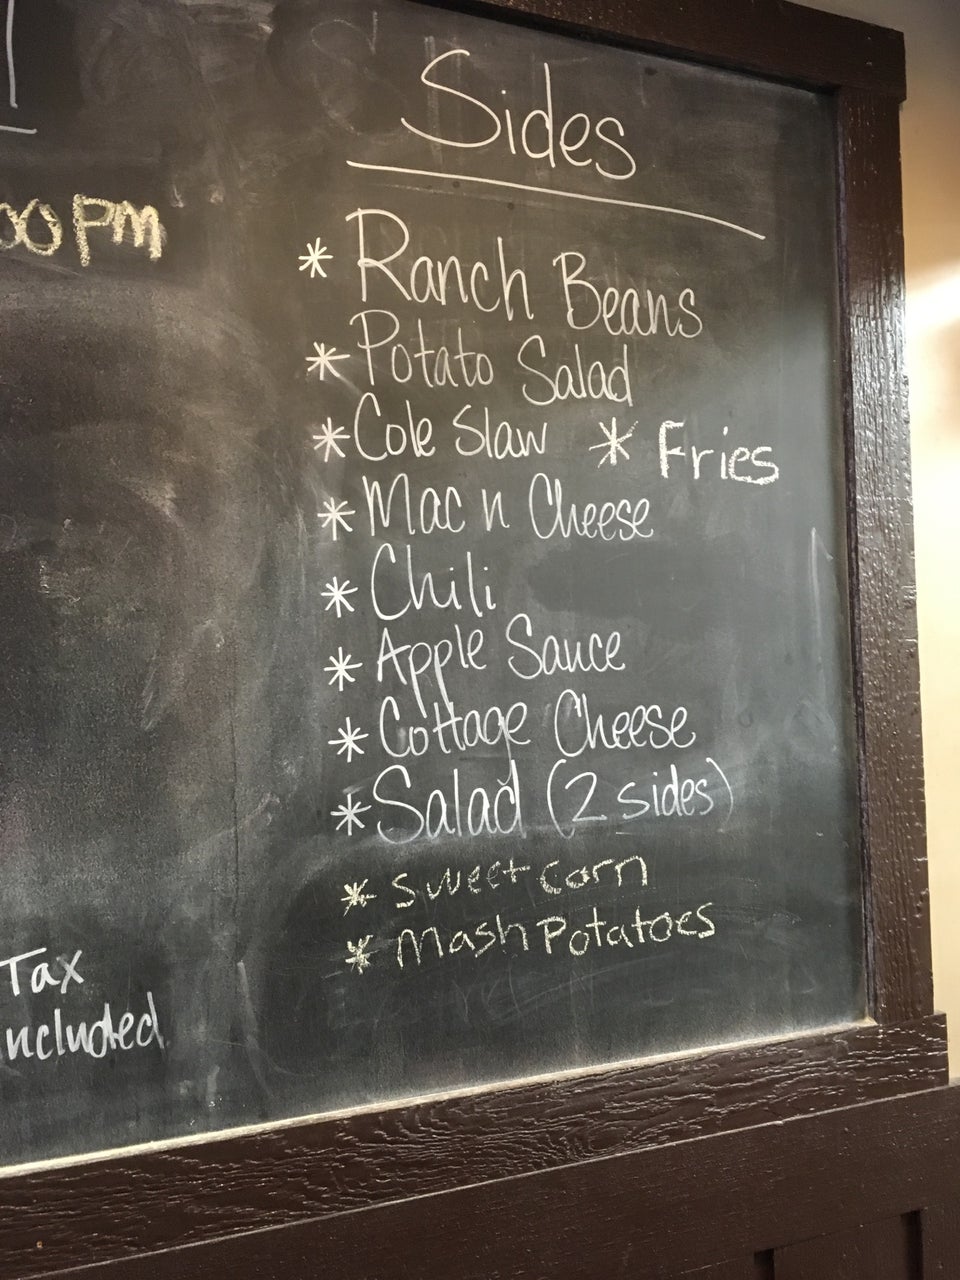 Sides
* Ranch Beans
* Potato Salad
* Cole Slaw * Fries
* Mac n Cheese
* Chili
* Apple Sauce
* Cottage Cheese
* Salad (2 sides)
* sweet corn
* Mash Potatoes
00 PM
Tax
included